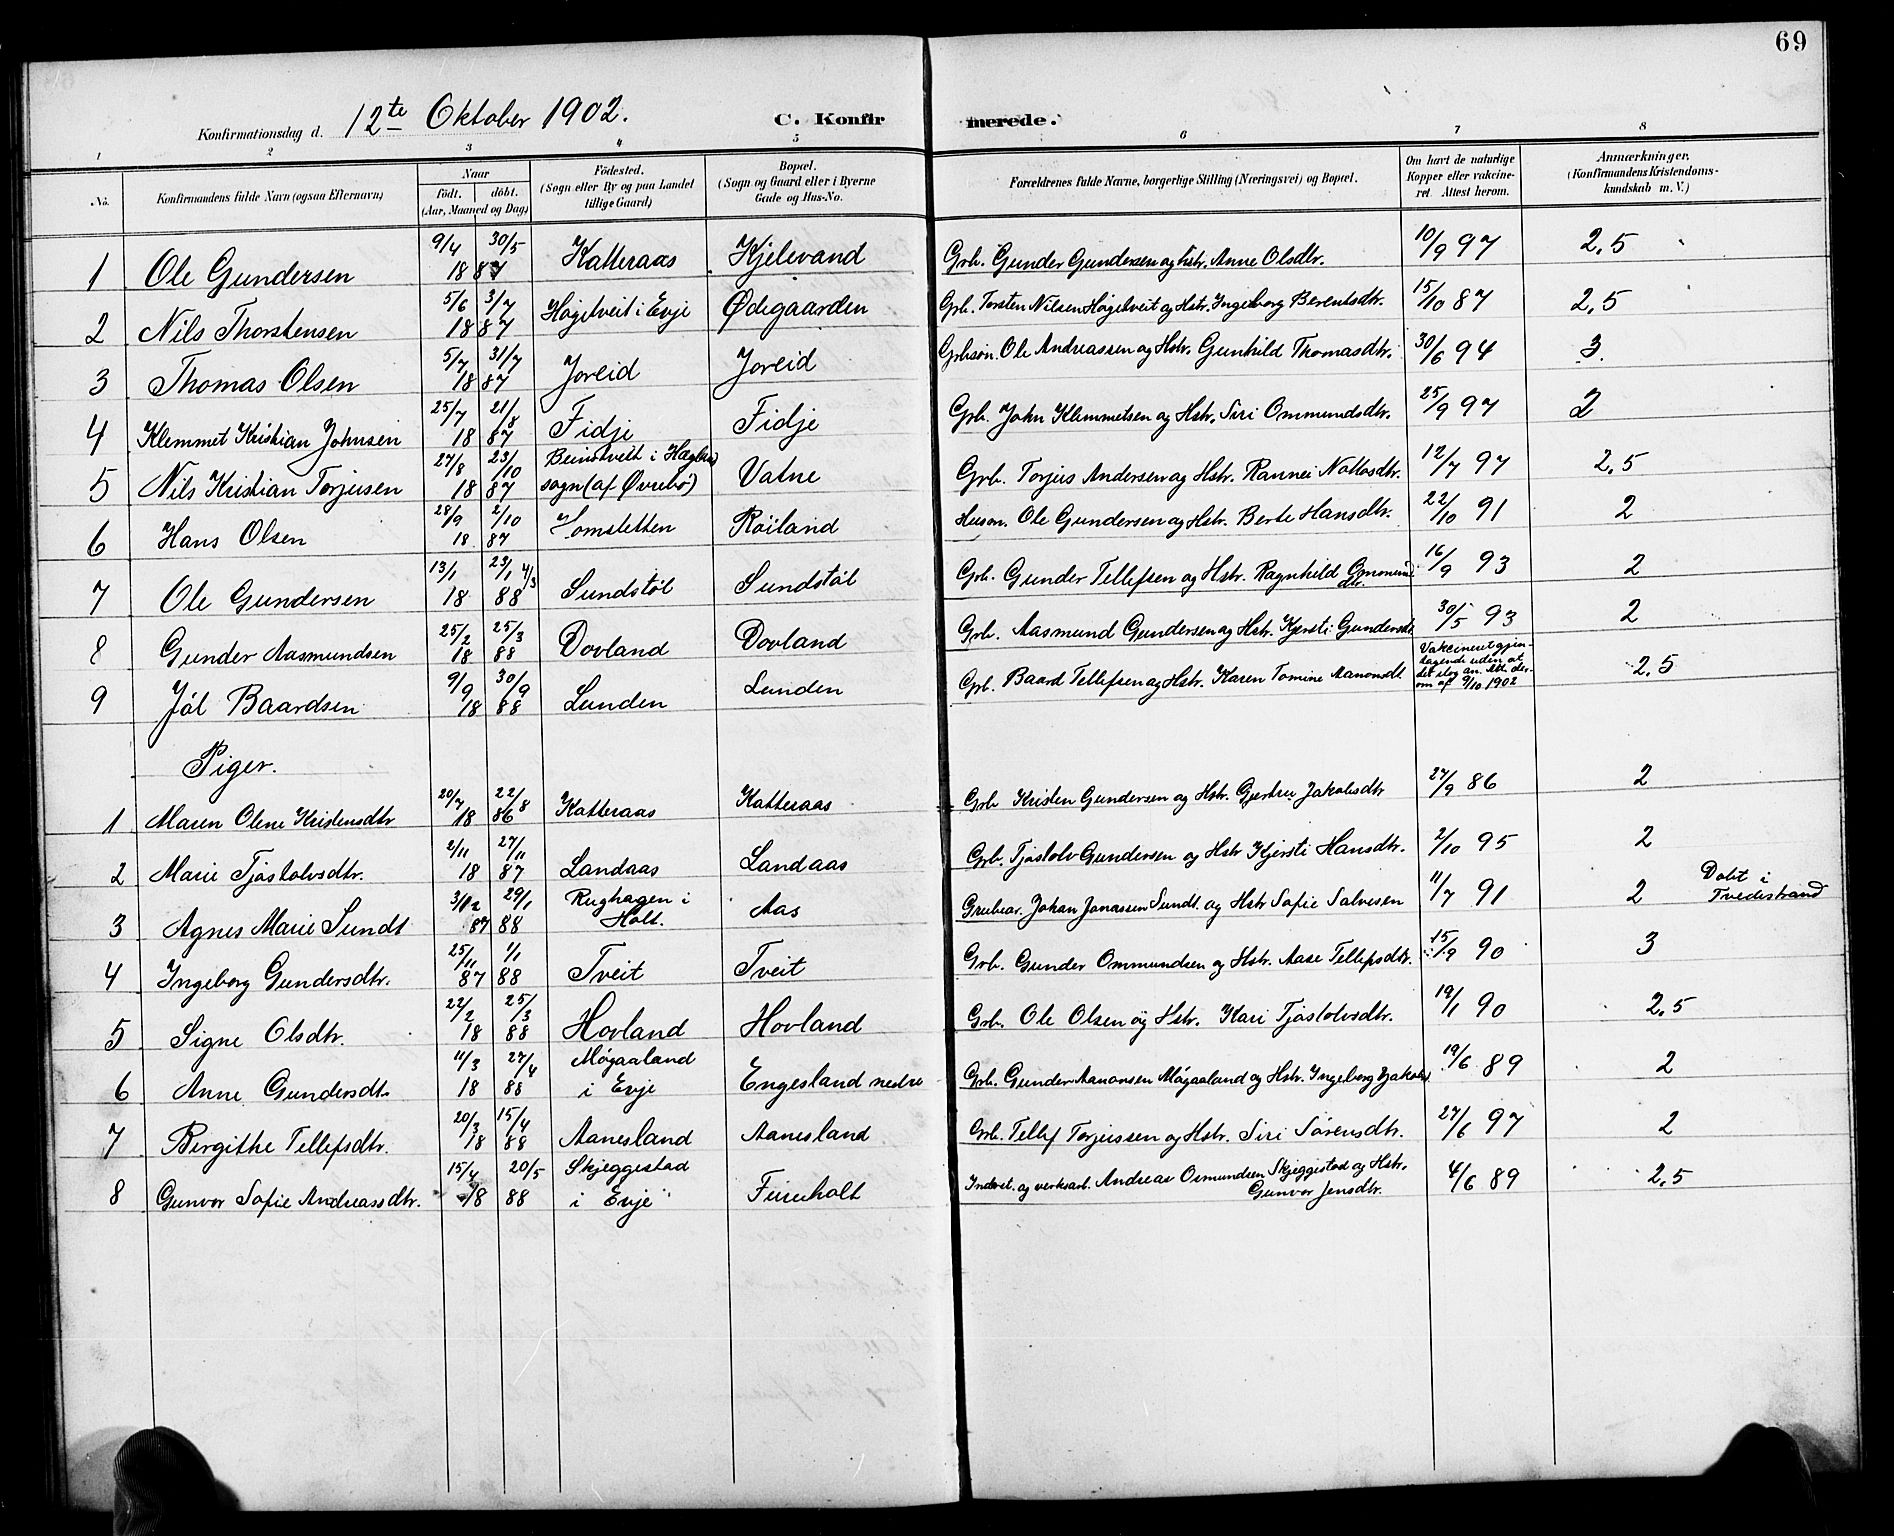 69
Konfirmationsdag d. 12te Oktober 1902. C. Konfirmerede.
1 2 3 4 5 6 7 8
No. Konfirmandens fulde Navn (ogsaa Efternavn) Naar født. døbt. (Aar, Maaned og Dag) Fødested. (Sogn eller By og paa Landet tillige Gaard) Bopæl. (Sogn og Gaard eller i Byerne Gade og Hus-No. Forældrenes fulde Navne, borgerlige Stilling (Næringsvei) og Bopæl. Om havt de naturlige Kopper eller vakcineret. Attest herom. Anmærkninger. (Konfirmandens Kristendomskundskab m. V.)
1 Ole Gundersen 9/4 30/5 1887 Katteraas Kjelevand Grb. Gunder Gundersen og Hstr. Anne Olsdtr. 10/9 97 2,5
2 Nils Thorstensen 5/6 3/7 1887 Høgetveit i Evje Ødegaarden Grb. Torsten Nilsen Høgetveit og Hstr. Ingeborg Berentsdtr. 15/10 87 2,5
3 Thomas Olsen 5/7 31/7 1887 Joreid Joreid Grbsøn. Ole Andreassen og Hstr. Gunhild Thomasdtr. 30/6 94 3.
4 Klemmet Kristian Johnsen 25/7 21/8 1887 Fidje Fidje Grb. John Klemmetsen og Hstr. Siri Ommundsdtr. 25/9 97 2
5 Nils Kristian Torjusen 27/8 23/10 1887 i Hægland sogn (af Øvrebø) Vatne Grb. Torjus Andersen og Hstr. Rannei Nottosdtr. 12/7 97 2,5
6 Hans Olsen 28/9 2/10 1887 Tomstetten Røiland Huson. Ole Gundersen og Hstr. Berte Hansdtr. 22/10 91 2
7 Ole Gundersen 13/1 23/1 4/3 1888 Sundstøl Sundstøl Grb. Gunder Tellefsen og Hstr. Ragnhild Ommundsdtr. 16/9 93 2
8 Gunder Aasmundsen 25/2 25/3 1888 Dovland Dovland Grb. Aasmund Gundersen og Hstr. Kjersti Gundersdt. 30/5 93 2
9 Jøl Baardsen 9/9 30/9 1888 Lunden Lunden Grb. Baard Tellefsen og Hstr. Karen Tomine Aanonsdt. Vakcineret gjentagende uden at det slog an. Att. derom af 9/10 1902 2,5
Piger.
1 Maren Olene Kristensdtr 20/7 22/8 1886 Katteraas Katteraas Grb Kristen Gundersen og Hstr. Gjertru Jakobsdtr 27/9 86 2
2 Marie Tjøstolvsdtr. 2/11 27/11 1887 Landaas Landaas Grb. Tjøstolv Gundersen og Hstr Kjersti Hansdtr. 2/10 95 2
3 Agnes Marie Sundt 3/12 87 29/1 88 Rughagen i Holt. Aas Grubear. Johan Jonassen Sundt. og Hstr Sofie Salvesen 11/7 91 2 Døbt i Tvedestrand
4 Ingeborg Gundersdtr. 25/11 87 1/1 88 Tveit Tveit Grb. Gunder Ommundsen og Hstr. Aase Tellefsdtr. 15/9 90 3
5 Signe Olsdtr. 22/2 25/3 1888 Hovland Hovland Grb. Ole Olsen og Hstr. Kari Tjøstolvsdtr. 19/1 90 2,5
6 Anne Gundersdtr. 11/3 27/4 1888 Møgaaland i Evje Engesland nedre Grb. Gunder Aanonsen Mågaaland og Hstr. Ingeborg 19/6 89 2
7 Bergithe Tellefsdtr. 20/3 15/4 1888 Aanesland Aanesland Grb. Tellef Torjussen og Hstr. Siri Sørensdtr. 27/6 97 2
8 Gunvor Sofie Andreassdtr. 15/4 20/5 1888 Skjeggestad i Evje Feireholt og verksarb. Andreas Osmundsen Skjeggestad og Hstr. Gunvor Jensdtr. 4/6 89 2,5